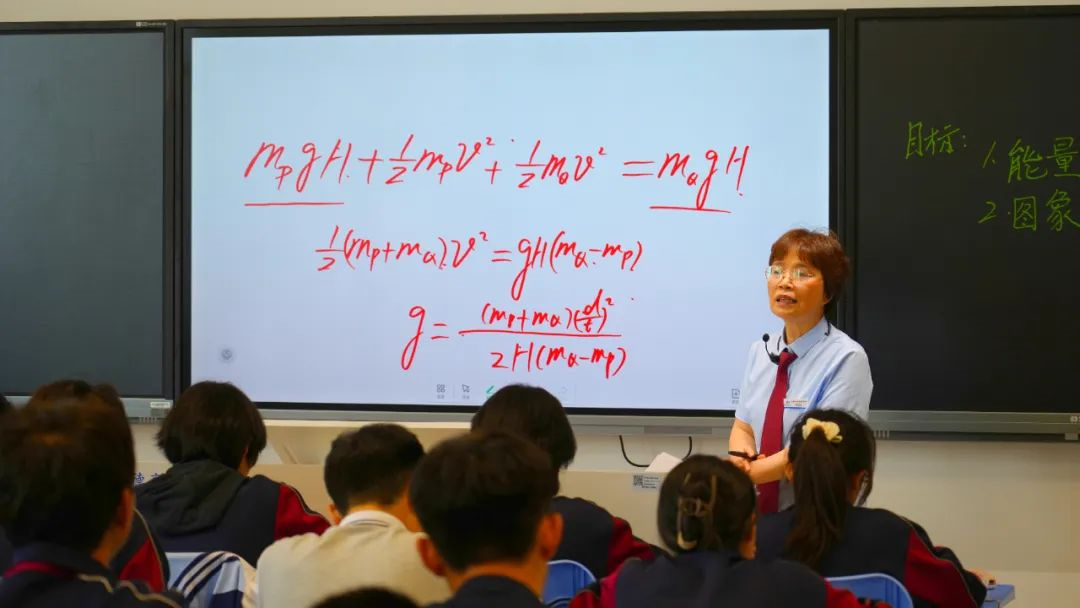 m_P gH + 1/2 m_P v² + 1/2 m_Q v² = m_Q gH
1/2 (m_P + m_Q) v² = gH (m_Q - m_P)
g = (m_P + m_Q)(d/t)² / 2H(m_Q - m_P)
目标:
1. 能量
2. 图象